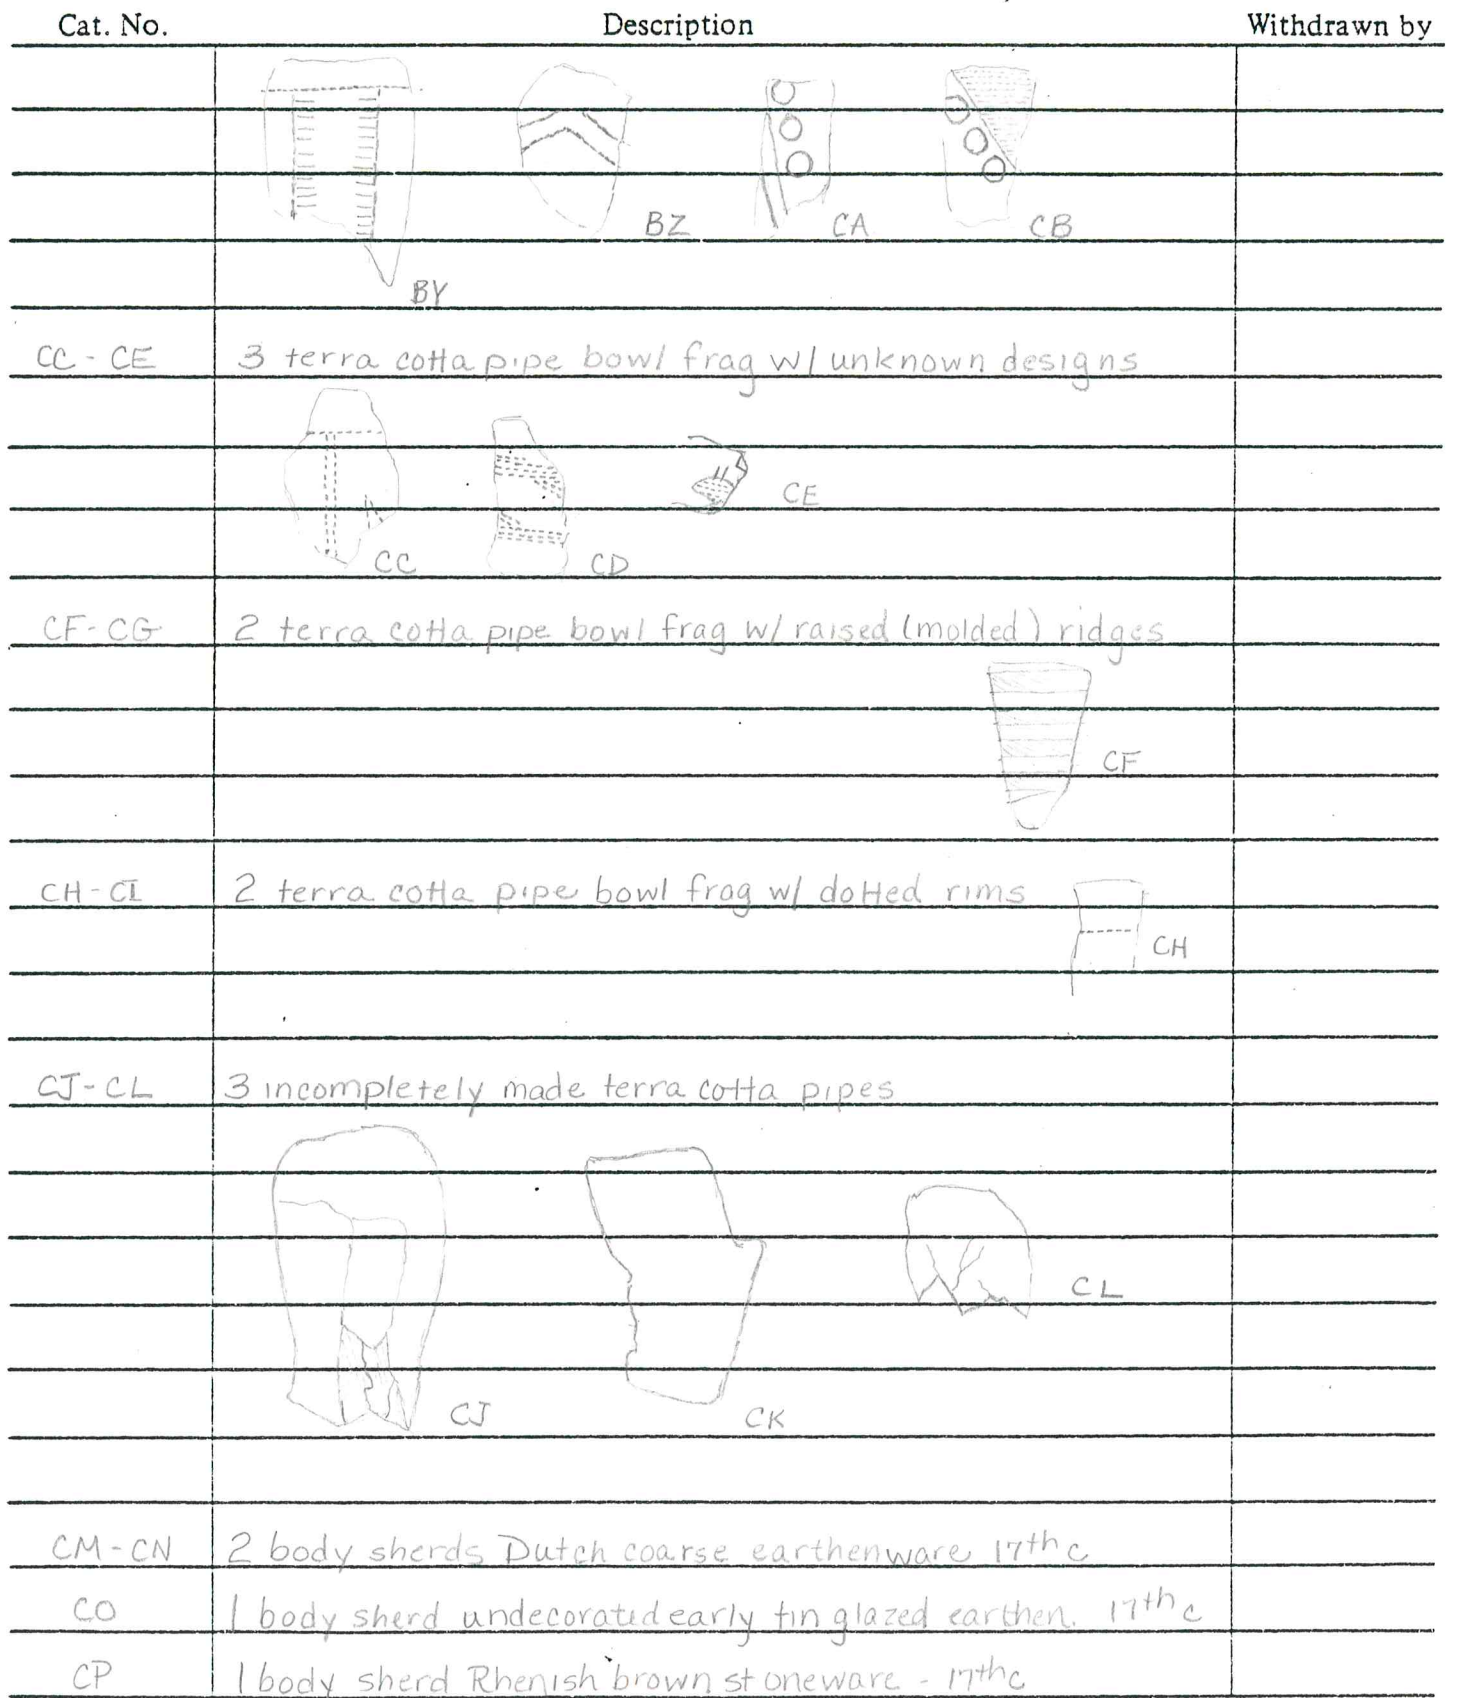 Cat. No. Description Withdrawn by
BZ CA CB
BY
CC - CE 3 terra cotta pipe bowl frag w/ unknown designs
CE
CC CD
CF - CG 2 terra cotta pipe bowl frag w/ raised (molded) ridges
CF
CH - CI 2 terra cotta pipe bowl frag w/ dotted rims
CH
CJ - CL 3 incompletely made terra cotta pipes
CL
CJ CK
CM - CN 2 body sherds Dutch coarse earthenware 17th c
CO 1 body sherd undecorated early tin glazed earthen. 17th c
CP 1 body sherd Rhenish brown stoneware - 17th c